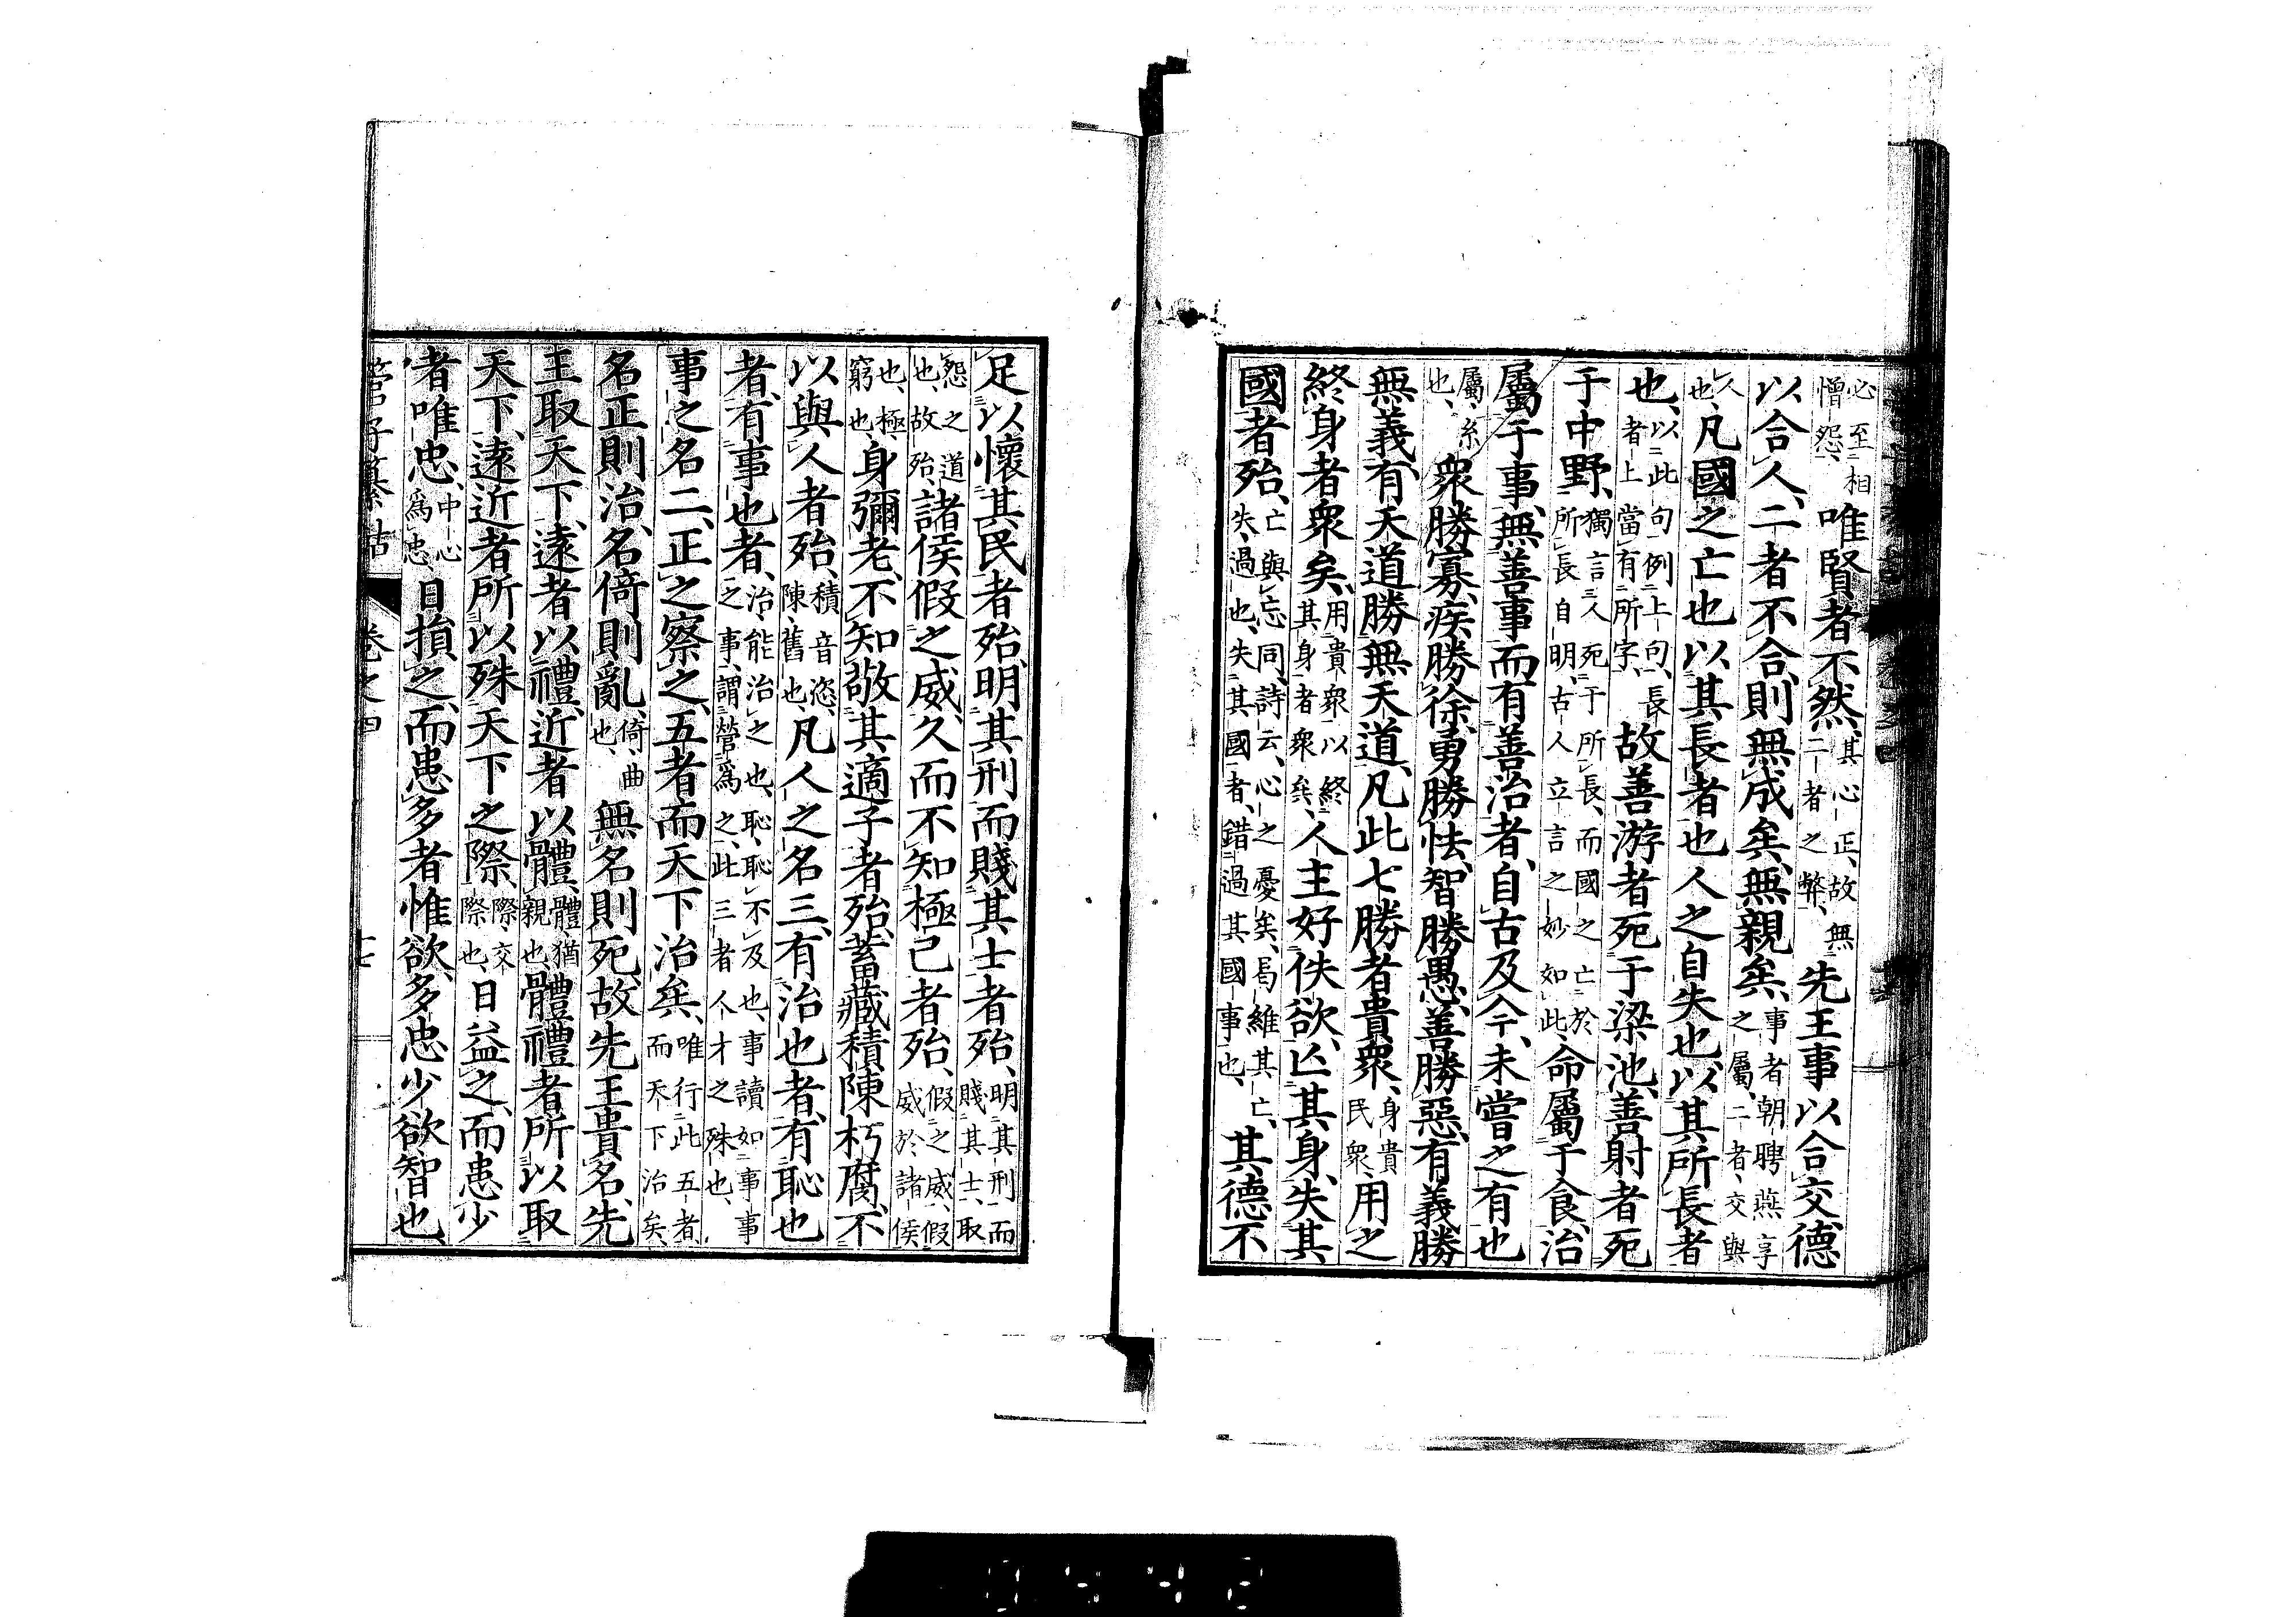 必至相憎怨、唯賢者不然、其心正、故無二者之弊、先王事以合交、德
以合人、二者不合、則無成矣、無親矣、事者朝聘燕享之屬、二者、交與
人也、凡國之亡也、以其長者也、人之自失也、以其所長者
也、以此句例上句、長者上當有所字、故善游者死于梁池、善射者死
于中野、獨言人死于所長、而國之亡於所長自明、古人立言之妙如此、命屬于食、治
屬于事、無善事而有善治者、自古及今、未嘗之有也
屬、系也、衆勝寡、疾勝徐、勇勝怯、智勝愚、善勝惡、有義勝
無義、有天道勝無天道、凡此七勝者貴衆、身貴民衆、用之
終身者衆矣、用貴衆以終其身者衆矣、人主好佚欲、亡其身、失其
國者殆、亡與忘同、詩云、心之憂矣、曷維其亡、失、過也、失其國者、錯過其國事也、其德不
足以懷其民者殆、明其刑而賤其士者殆、明其刑而賤其士、取
怨之道也、故殆、諸侯假之威、久而不知極己者殆、假之威、假威於諸侯
也、極、窮也、身彌老、不知敬其適子者殆、蓄藏積陳朽腐、不
以與人者殆、積音恣、陳、舊也、凡人之名三、有治也者、有恥也
者、有事也者、治、能治之也、恥、恥不及也、事讀如事事之事、謂營爲之、此三者人才之殊也、
事之名二、正之察之、五者而天下治矣、唯行此五者、而天下治矣、
名正則治、名倚則亂、倚、曲也、無名則死、故先王貴名、先
王取天下、遠者以禮、近者以體、體、猶親也、體禮者所以取
天下、遠近者所以殊天下之際、際、交際也、日益之、而患少
者唯忠、中心爲忠、日損之、而患多者惟欲、多忠少欲智也、
管子纂詁　卷之四　十七